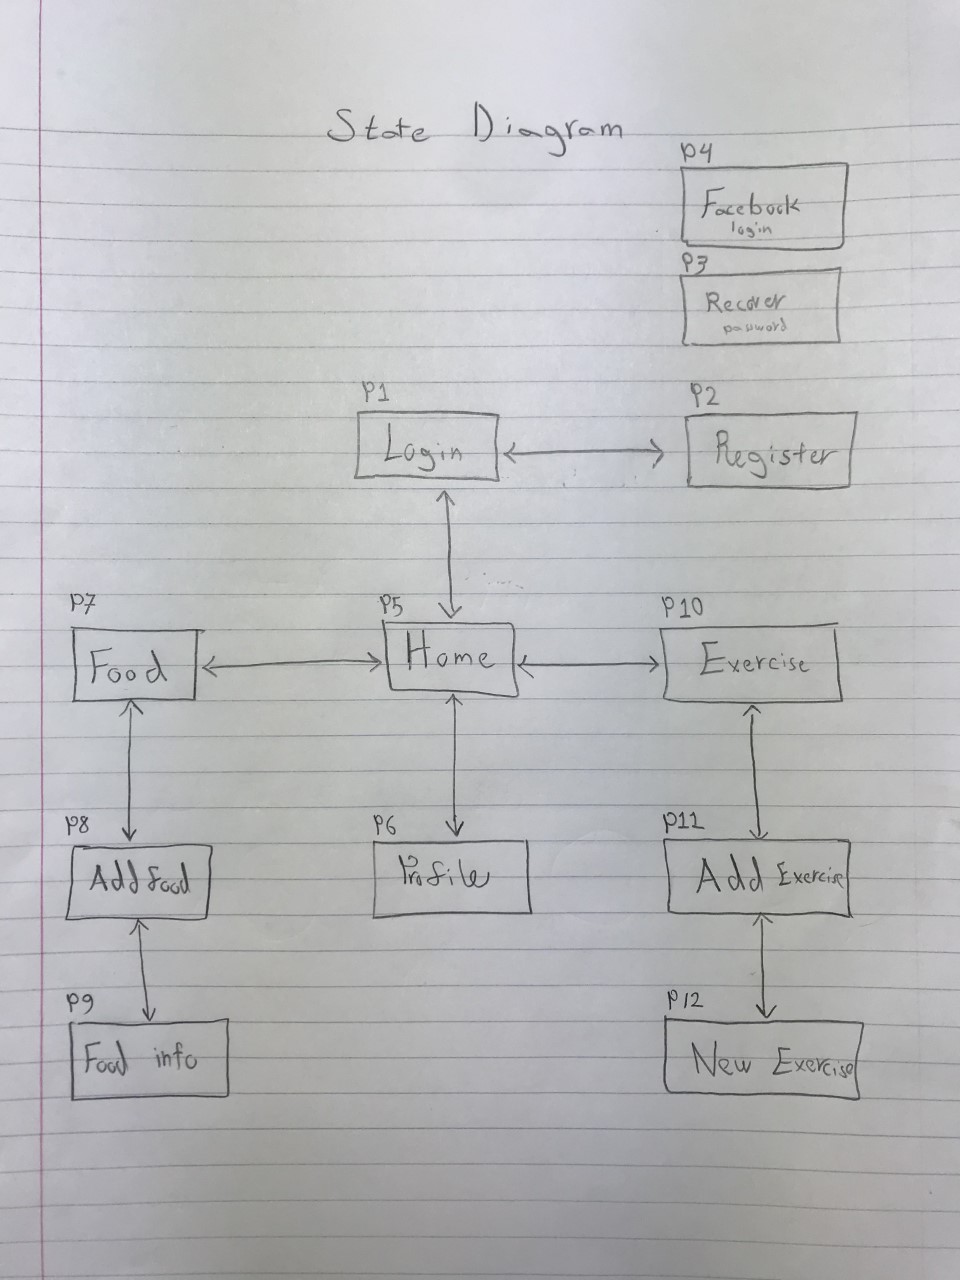 State Diagram
P4
Facebook
login
P3
Recover
password
P1
Login
P2
Register
P7
Food
P5
Home
P10
Exercise
P8
Add food
P6
Profile
P11
Add Exercise
P9
Food info
P12
New Exercise